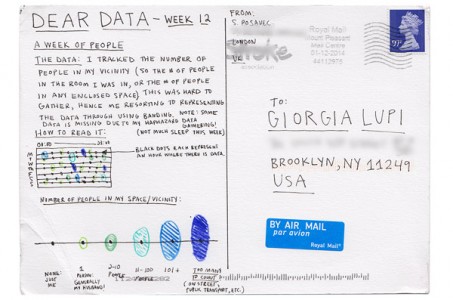 DEAR DATA - WEEK 12
A WEEK OF PEOPLE
THE DATA: I TRACKED THE NUMBER OF
PEOPLE IN MY VICINITY (SO THE # OF PEOPLE
IN THE ROOM I WAS IN, OR THE # OF PEOPLE
IN ANY ENCLOSED SPACE) THIS WAS HARD TO
GATHER, HENCE ME RESORTING TO REPRESENTING
THE DATA THROUGH USING BANDING. NOTE: SOME
DATA IS MISSING DUE TO MY HAPHAZARD DATA
GATHERING!
(NOT MUCH SLEEP THIS WEEK)
HOW TO READ IT:
M
T
W
T
F
S
S
BLACK DOTS EACH REPRESENT
AN HOUR WHERE THERE IS DATA.
NUMBER OF PEOPLE IN MY SPACE/VICINITY:
NONE:
JUST
ME
1
PERSON:
GENERALLY
MY HUSBAND!
2-10
PEOPLE
11-100
PEOPLE
101+
TOO MANY
TO COUNT
(ON STREET,
PUBLIC TRANSPORT, ETC.)
FROM:
S. POSAVEC
LONDON
UK
Royal Mail
Mount Pleasant
Mail Centre
01-12-2014
TO:
GIORGIA LUPI
BROOKLYN, NY 11249
USA
BY AIR MAIL
par avion
Royal Mail